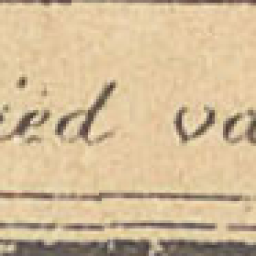 ied va